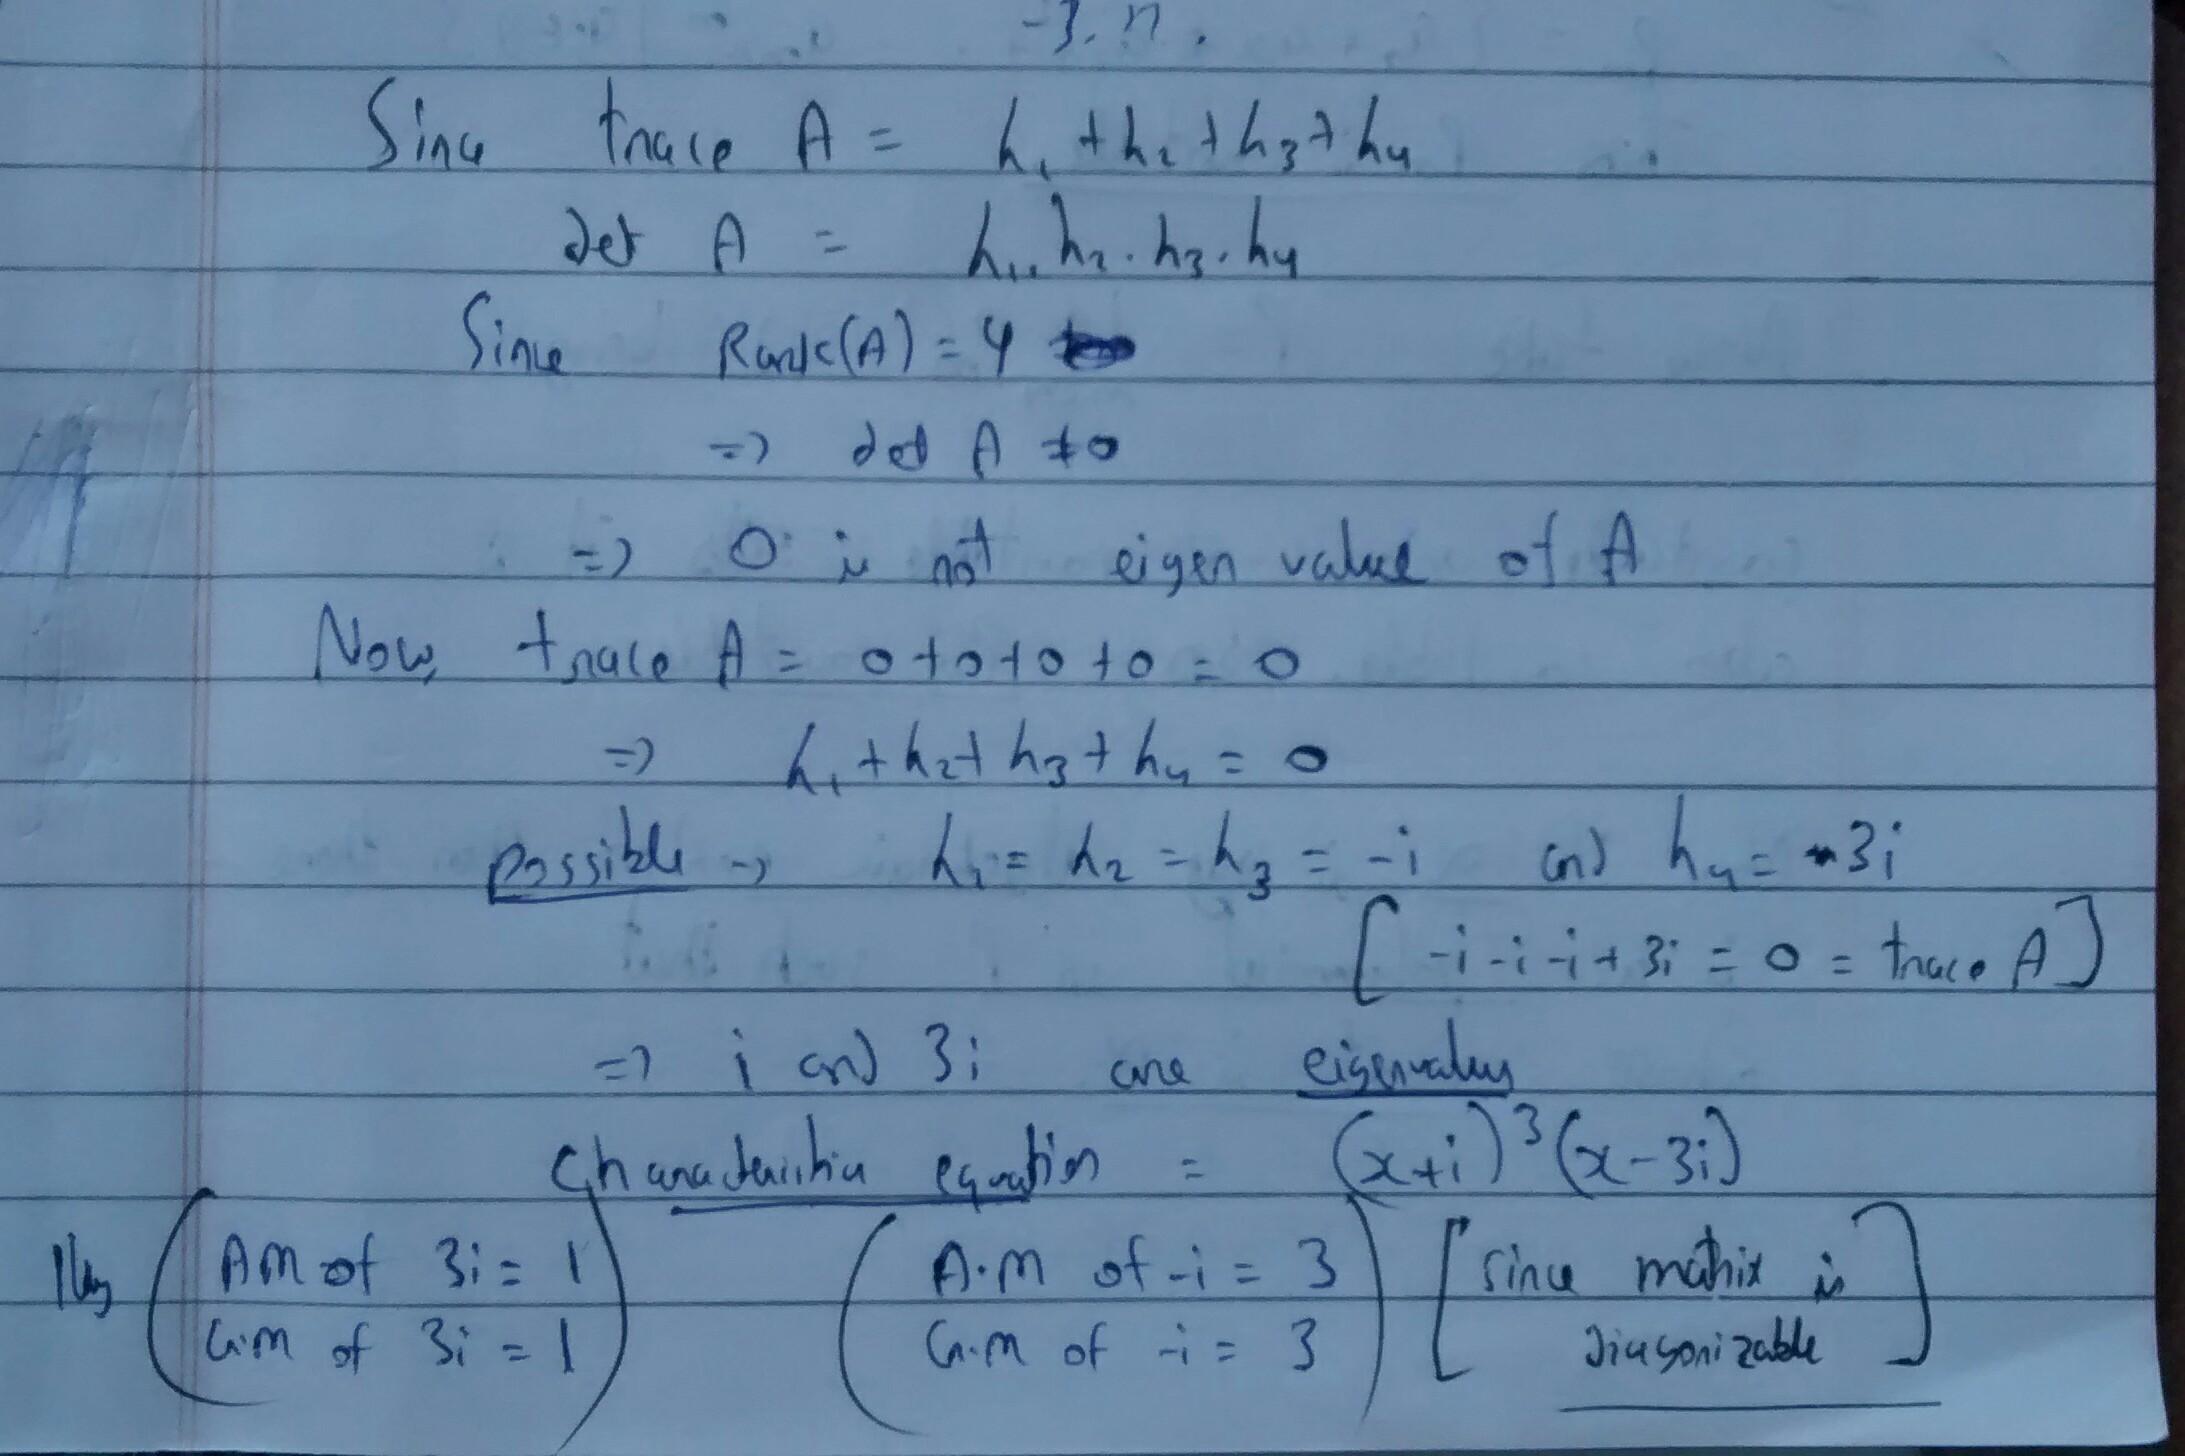 Since trace A = h₁ + h₂ + h₃ + h₄
det A = h₁ . h₂ . h₃ . h₄
Since Rank(A) = 4
=> det A ≠ 0
=> 0 is not eigen value of A
Now, trace A = 0 + 0 + 0 + 0 = 0
=> h₁ + h₂ + h₃ + h₄ = 0
possible → h₁ = h₂ = h₃ = -i and h₄ = 3i
[ -i - i - i + 3i = 0 = trace A ]
=> i and 3i are eigenvalues
Characteristic equation = (x+i)³(x-3i)
lly ( AM of 3i = 1 ) ( A.M of -i = 3 ) [ Since matrix is
G.M of 3i = 1 G.M of -i = 3 Diagonizable ]